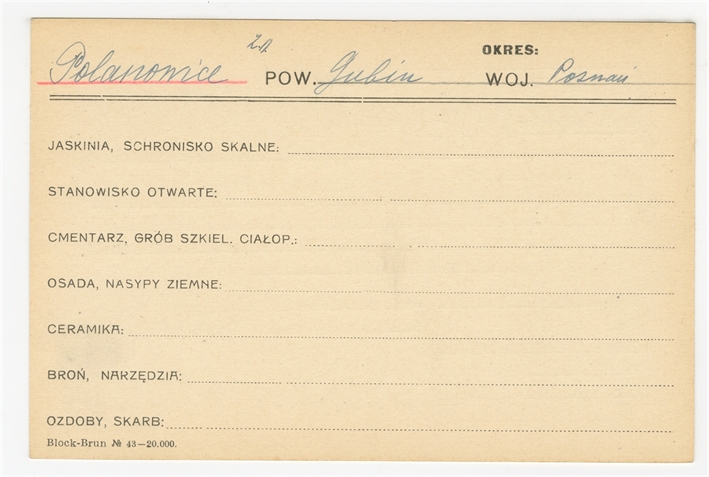 OKRES:
Polanowice POW. Gubin WOJ. Poznań
JASKINIA, SCHRONISKO SKALNE:
STANOWISKO OTWARTE:
CMENTARZ, GRÓB SZKIEL. CIAŁOP.:
OSADA, NASYPY ZIEMNE:
CERAMIKA:
BROŃ, NARZĘDZIA:
OZDOBY, SKARB:
Block-Brun № 43—20.000.